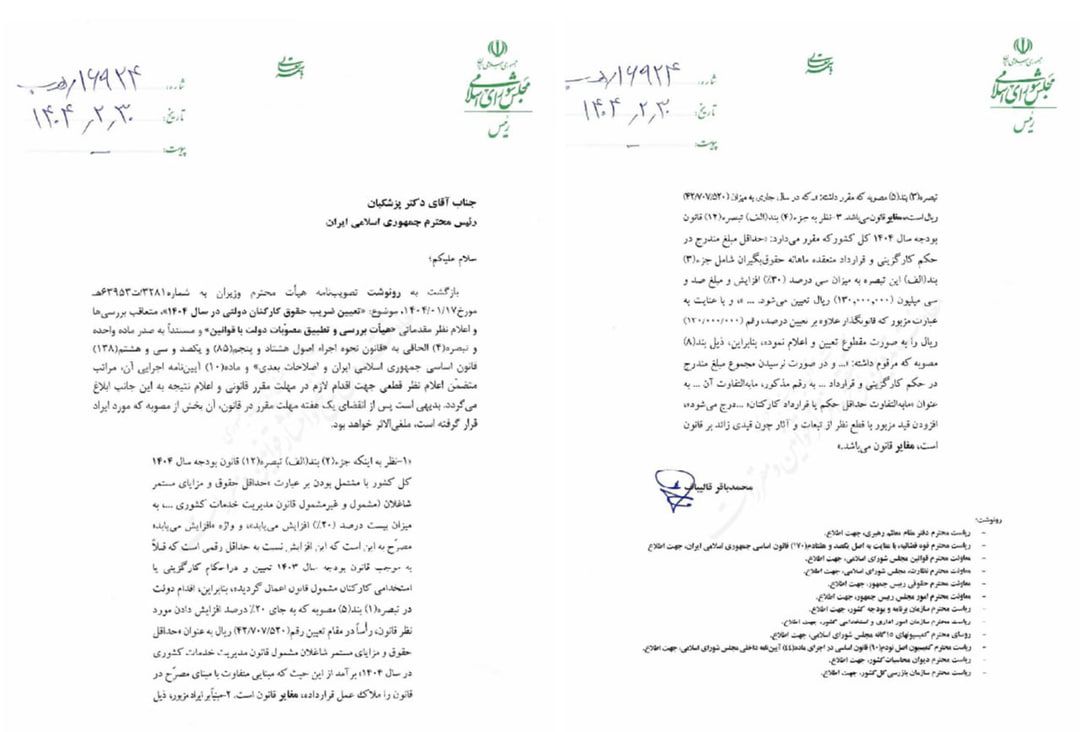 جمهوری اسلامی ایران
مجلس شورای اسلامی
رئیس
بسمه تعالی
شماره: ۱۶۹۲۴/هـ ب
تاریخ: ۱۴۰۴/۲/۳۰
پیوست: ـ
جناب آقای دکتر پزشکیان
رئیس محترم جمهوری اسلامی ایران
سلام علیکم؛
بازگشت به رونوشت تصویب‌نامه هیأت محترم وزیران به شماره ۳۲۸۱/ت۶۳۹۵۳هـ
مورخ ۱۴۰۴/۰۱/۱۷، موضوع: «تعیین ضریب حقوق کارکنان دولتی در سال ۱۴۰۴»، متعاقب بررسی‌ها
و اعلام نظر مقدماتی «هیأت بررسی و تطبیق مصوّبات دولت با قوانین» و مستنداً به صدر ماده واحده
و تبصره(۴) الحاقی به «قانون نحوه اجراء اصول هشتاد و پنجم(۸۵) و یکصد و سی و هشتم(۱۳۸)
قانون اساسی جمهوری اسلامی ایران و اصلاحات بعدی» و ماده(۱۰) آیین‌نامه اجرایی آن، مراتب
متضمّن اعلام نظر قطعی جهت اقدام لازم در مهلت مقرر قانونی و اعلام نتیجه به این جانب ابلاغ
می‌گردد. بدیهی است پس از انقضای یک هفته مهلت مقرر در قانون، آن بخش از مصوبه که مورد ایراد
قرار گرفته است، ملغی‌الاثر خواهد بود.
«۱-نظر به اینکه جزء(۲) بند(الف) تبصره(۱۲) قانون بودجه سال ۱۴۰۴
کل کشور با مشتمل بودن بر عبارت «حداقل حقوق و مزایای مستمر
شاغلان (مشمول و غیرمشمول قانون مدیریت خدمات کشوری ...، به
میزان بیست درصد (۲۰٪) افزایش می‌یابد»، و واژه «افزایش می‌یابد»
مصرّح به این است که این افزایش نسبت به حداقل رقمی است که قبلاً
به موجب قانون بودجه سال ۱۴۰۳ تعیین و در احکام کارگزینی یا
استخدامی کارکنان مشمول قانون اعمال گردیده، بنابراین، اقدام دولت
در تبصره(۱) بند(۵) مصوبه که به جای ۲۰٪ درصد افزایش دادن مورد
نظر قانون، رأساً در مقام تعیین رقم(۴۲/۷۰۷/۵۲۰) ریال به عنوان «حداقل
حقوق و مزایای مستمر شاغلان مشمول قانون مدیریت خدمات کشوری
در سال ۱۴۰۴» برآمد از این حیث که مبنایی متفاوت با مبنای مصرّح در
قانون را ملاک عمل قرارداده، مغایر قانون است. ۲-مبنیاً بر ایراد مزبور، ذیل
جمهوری اسلامی ایران
مجلس شورای اسلامی
رئیس
بسمه تعالی
شماره: ۱۶۹۲۴/هـ ب
تاریخ: ۱۴۰۴/۲/۳۰
پیوست: ـ
تبصره(۳) بند(۵) مصوبه که مقرر داشته: «ـ که در سال جاری به میزان (۴۲/۷۰۷/۵۲۰)
ریال است، مغایر قانون می‌باشد. ۳-نظر به جزء(۴) بند(الف) تبصره(۱۲) قانون
بودجه سال ۱۴۰۴ کل کشور که مقرر می‌دارد: «حداقل مبلغ مندرج در
حکم کارگزینی و قرارداد منعقده ماهانه حقوق‌بگیران شامل جزء(۳)
بند(الف) این تبصره به میزان سی درصد (۳۰٪) افزایش و مبلغ صد و
سی میلیون (۱۳۰,۰۰۰,۰۰۰) ریال تعیین می‌شود. ... »، و با عنایت به
عبارت مزبور که قانونگذار علاوه بر تعیین درصد، رقم (۱۲۰/۰۰۰/۰۰۰)
ریال را به صورت مقطوع تعیین و اعلام نموده، بنابراین، ذیل بند(۸)
مصوبه که مرقوم داشته: «... و در صورت نرسیدن مجموع مبلغ مندرج
در حکم کارگزینی و قرارداد ... به رقم مذکور، مابه‌التفاوت آن ... به
عنوان «مابه‌التفاوت حداقل حکم یا قرارداد کارکنان» ...درج می‌شود»،
افزودن قید مزبور با قطع نظر از تبعات و آثار چون قیدی زائد بر قانون
است، مغایر قانون می‌باشد.»
محمدباقر قالیباف
رونوشت:
- ریاست محترم دفتر مقام معظم رهبری، جهت اطلاع.
- ریاست محترم قوه قضائیه، با عنایت به اصل یکصد و هفتادم(۱۷۰) قانون اساسی جمهوری اسلامی ایران، جهت اطلاع
- معاونت محترم قوانین مجلس شورای اسلامی، جهت اطلاع.
- معاونت محترم نظارت، مجلس شورای اسلامی، جهت اطلاع.
- معاونت محترم حقوقی رییس جمهور، جهت اطلاع.
- معاونت محترم امور مجلس رییس جمهور، جهت اطلاع.
- ریاست محترم سازمان برنامه و بودجه کشور، جهت اطلاع.
- ریاست محترم سازمان امور اداری و استخدامی کشور، جهت اطلاع.
- روسای محترم کمیسیونهای ۱۵گانه مجلس شورای اسلامی، جهت اطلاع.
- ریاست محترم کمیسیون اصل نودم(۹۰) قانون اساسی در اجرای ماده(۴۴) آیین‌نامه داخلی مجلس شورای اسلامی، جهت اطلاع.
- ریاست محترم دیوان محاسبات کشور، جهت اطلاع.
- ریاست محترم سازمان بازرسی کل کشور، جهت اطلاع.